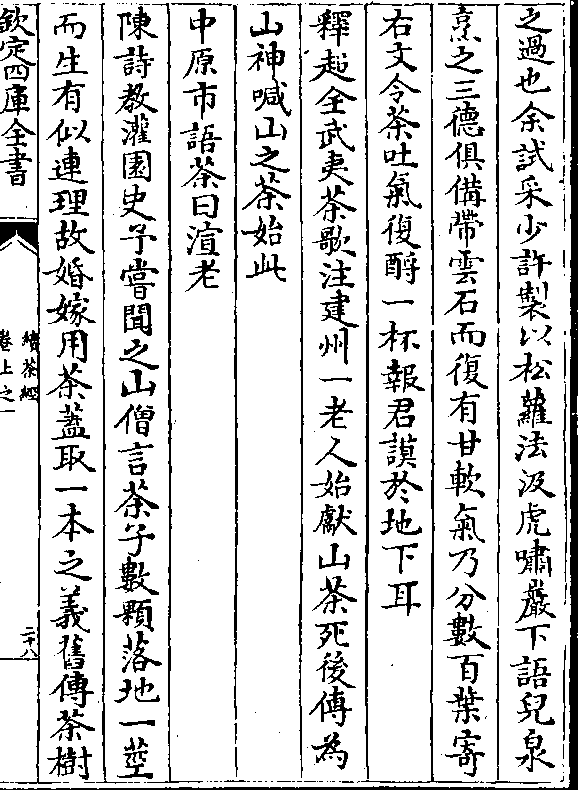 之過也余試采少許製以松蘿法汲虎嘯巖下語兒泉
烹之三德俱備帶雲石而復有甘軟氣乃分數百葉寄
右文令茶吐氣復酹一杯報君謨於地下耳
釋超全武夷茶歌注建州一老人始獻山茶死後傳為
山神喊山之茶始此
中原市語茶曰渲老
陳詩教灌園史予嘗聞之山僧言茶子數顆落地一莖
而生有似連理故婚嫁用茶蓋取一本之義舊傳茶樹
欽定四庫全書
續茶經
卷上之一
二十八